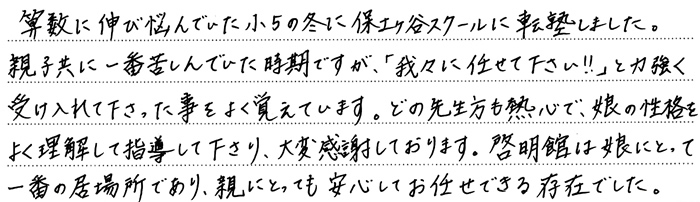 算数に伸び悩んでいた小5の冬に保土ヶ谷スクールに転塾しました。
親子共に一番苦しんでいた時期ですが、「我々に任せて下さい!!」と力強く
受け入れて下さった事をよく覚えています。どの先生方も熱心で、娘の性格を
よく理解して指導して下さり、大変感謝しております。啓明館は娘にとって
一番の居場所であり、親にとっても安心してお任せできる存在でした。